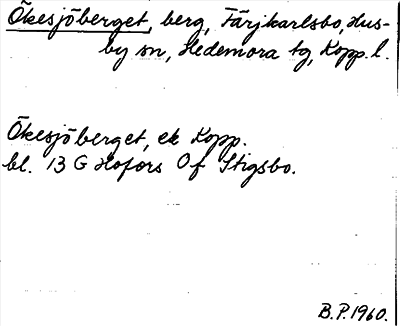 Ökesjöberget, berg, Färjkarlsbo, Hus-
by sn, Hedemora tg, Kopp. l.
Ökesjöberget, ek Kopp.
bl. 13 G Hofors Of Stigsbo.
B.P. 1960.